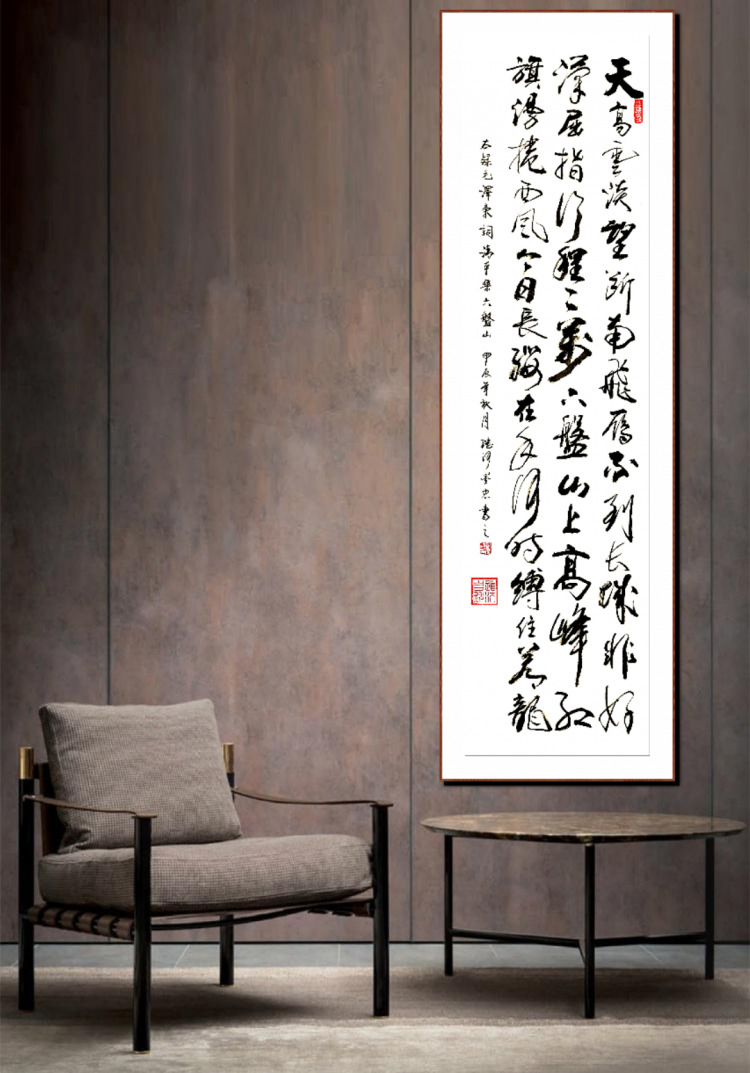 天高雲淡望斷南飛雁不到长城非好
漢屈指行程二萬六盤山上高峰紅
旗漫捲西風今日長纓在手何時縛住蒼龍
右錄毛澤東詞清平樂六盤山 甲辰年秋月 書之